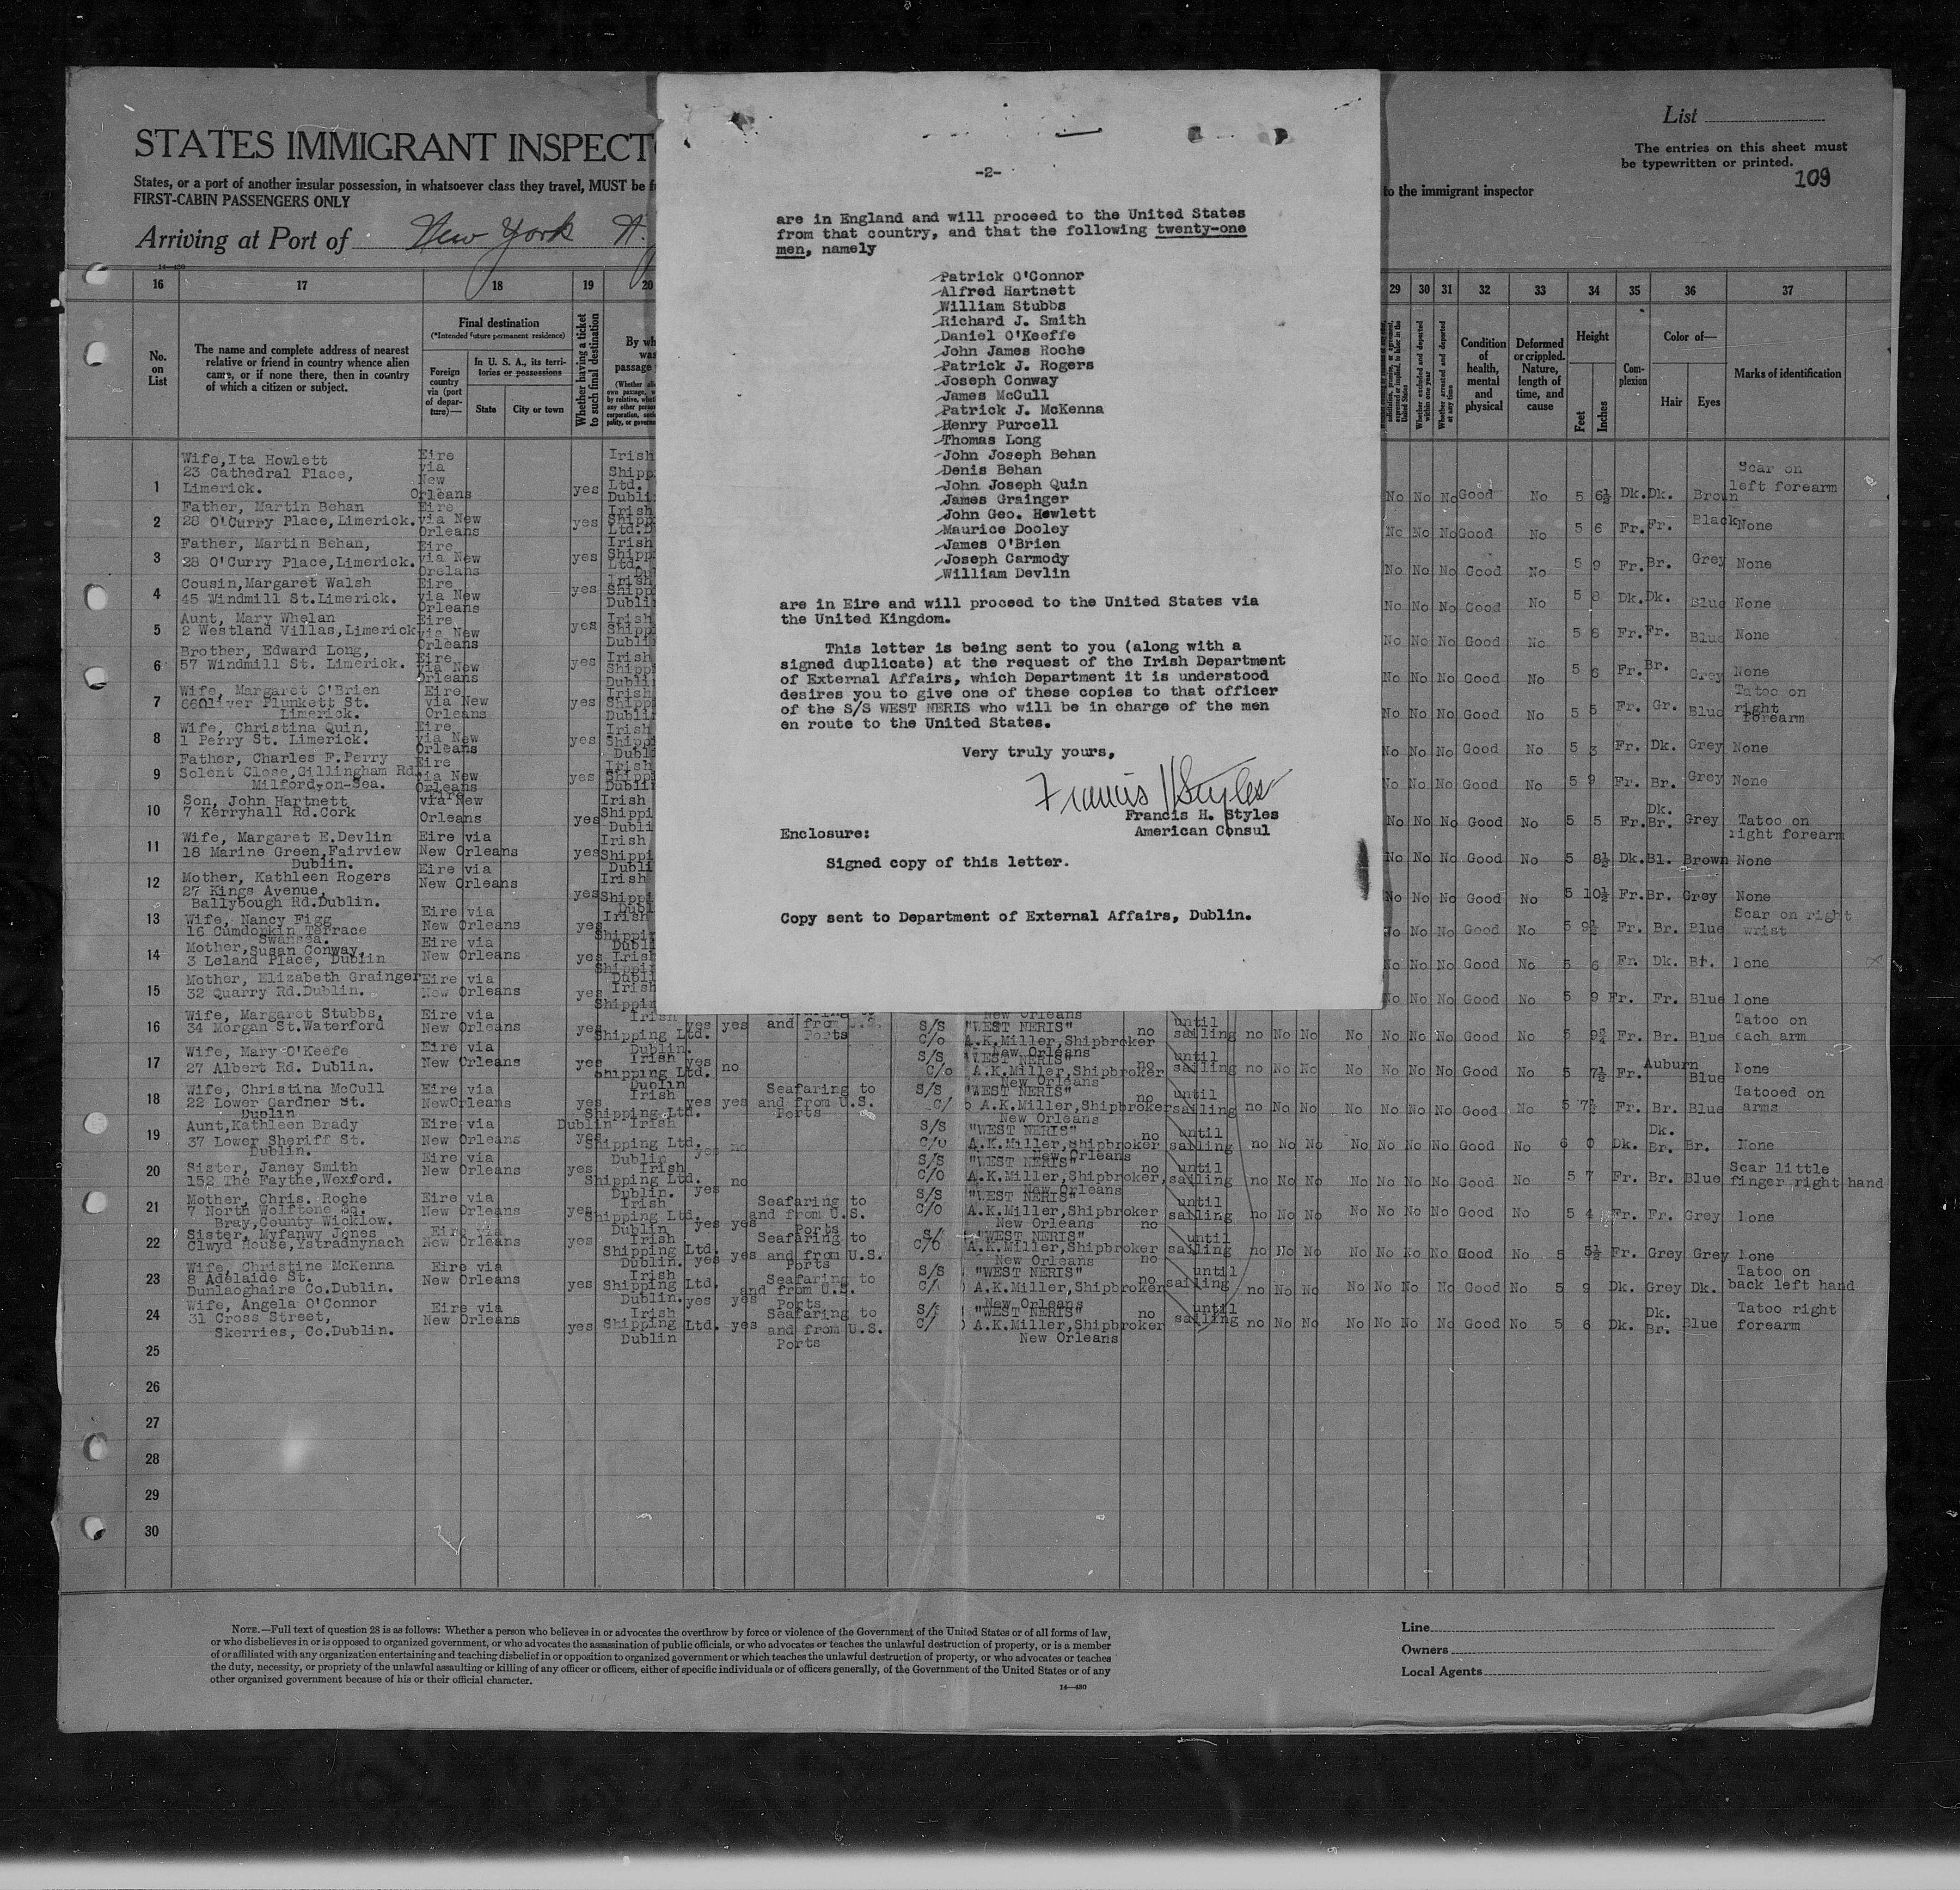 STATES IMMIGRANT INSPECT
States, or a port of another insular possession, in whatsoever class they travel, MUST be f
FIRST-CABIN PASSENGERS ONLY
Arriving at Port of New York
to the immigrant inspector
List
The entries on this sheet must
be typewritten or printed.
109
-2-
are in England and will proceed to the United States
from that country, and that the following twenty-one
men, namely
Patrick O'Connor
Alfred Hartnett
William Stubbs
Richard J. Smith
Daniel O'Keeffe
John James Roche
Patrick J. Rogers
Joseph Conway
James McCull
Patrick J. McKenna
Henry Purcell
Thomas Long
John Joseph Behan
Denis Behan
John Joseph Quin
James Grainger
John Geo. Howlett
Maurice Dooley
James O'Brien
Joseph Carmody
William Devlin
are in Eire and will proceed to the United States via
the United Kingdom.
This letter is being sent to you (along with a
signed duplicate) at the request of the Irish Department
of External Affairs, which Department it is understood
desires you to give one of these copies to that officer
of the S/S WEST NERIS who will be in charge of the men
en route to the United States.
Very truly yours,
Francis H. Styles
Francis H. Styles
American Consul
Enclosure:
Signed copy of this letter.
Copy sent to Department of External Affairs, Dublin.
16 17 18 19 20 29 30 31 32 33 34 35 36 37
No. on List
The name and complete address of nearest
relative or friend in country whence alien
came, or if none there, then in country
of which a citizen or subject.
Final destination
(*Intended future permanent residence)
Foreign country via (port of departure)—
In U. S. A., its territories or possessions
State
City or town
Whether having a ticket to such final destination
Condition of health, mental and physical
Deformed or crippled. Nature, length of time, and cause
Height
Feet
Inches
Complexion
Color of—
Hair
Eyes
Marks of identification
1 Wife, Ita Howlett
23 Cathedral Place,
Limerick.
Eire via New Orleans yes No No No Good No 5 6½ Dk. Dk. Brown Scar on left forearm
2 Father, Martin Behan
28 O'Curry Place, Limerick.
Eire via New Orleans yes No No No Good No 5 6 Fr. Fr. Black None
3 Father, Martin Behan,
28 O'Curry Place, Limerick.
Eire via New Orelans yes No No No Good No 5 9 Fr. Br. Grey None
4 Cousin, Margaret Walsh
45 Windmill St. Limerick.
Eire via New Orleans yes No No No Good No 5 8 Dk. Dk. Blue None
5 Aunt, Mary Whelan
2 Westland Villas, Limerick
Eire via New Orleans yes No No No Good No 5 8 Fr. Fr. Blue None
6 Brother, Edward Long,
57 Windmill St. Limerick.
Eire via New Orleans yes No No No Good No 5 6 Fr. Br. Grey None
7 Wife, Margaret O'Brien
Oliver Plunkett St.
Limerick.
Eire via New Orleans yes No No No Good No 5 5 Fr. Gr. Blue Tatoo on right forearm
8 Wife, Christina Quin,
1 Perry St. Limerick.
Eire via New Orleans yes No No No Good No 5 3 Fr. Dk. Grey None
9 Father, Charles F. Perry
Solent Close, Gillingham Rd.
Milford-on-Sea.
Eire via New Orleans yes No No No Good No 5 9 Fr. Br. Grey None
10 Son, John Hartnett
7 Kerryhall Rd. Cork
via New Orleans yes No No No Good No 5 5 Fr. Dk. Br. Grey Tatoo on right forearm
11 Wife, Margaret E. Devlin
18 Marine Green, Fairview
Dublin.
Eire via New Orleans yes No No No Good No 5 8½ Dk. Bl. Brown None
12 Mother, Kathleen Rogers
27 Kings Avenue,
Ballybough Rd. Dublin.
Eire via New Orleans yes No No No Good No 5 10½ Fr. Br. Grey None
13 Wife, Nancy Figg
16 Cumdonkin Terrace
Swansea.
Eire via New Orleans yes No No No Good No 5 9½ Fr. Br. Blue Scar on right wrist
14 Mother, Susan Conway,
3 Leland Place, Dublin
Eire via New Orleans yes No No No Good No 5 6 Fr. Dk. Br. None
15 Mother, Elizabeth Grainger
32 Quarry Rd. Dublin.
Eire via New Orleans yes No No No Good No 5 9 Fr. Fr. Blue None
16 Wife, Margaret Stubbs,
34 Morgan St. Waterford
Eire via New Orleans yes Irish Shipping Ltd. Dublin. yes yes and from U.S. Ports S/S "WEST NERIS" C/o A.K.Miller, Shipbroker New Orleans no until sailing no No No No No No No Good No 5 Fr. Br. Blue Tatoo on each arm
17 Wife, Mary O'Keefe
27 Albert Rd. Dublin.
Eire via New Orleans yes Irish Shipping Ltd. Dublin yes no S/S "WEST NERIS" C/o A.K.Miller, Shipbroker New Orleans no until sailing no No No No No No No Good No 5 7½ Fr. Auburn Blue None
18 Wife, Christina McCull
22 Lower Gardner St.
Dublin
Eire via NewOrleans yes Irish Shipping Ltd. Dublin yes yes Seafaring to and from U.S. Ports S/S "WEST NERIS" A.K.Miller, Shipbroker New Orleans no until sailing no No No No No No No Good No 5 7½ Fr. Br. Blue Tatooed on arms
19 Aunt, Kathleen Brady
37 Lower Sheriff St.
Dublin.
Eire via New Orleans yes Irish Shipping Ltd. Dublin yes no S/S "WEST NERIS" C/o A.K.Miller, Shipbroker New Orleans no until sailing no No No No No No No Good No 6 0 Dk. Dk. Br. Br. None
20 Sister, Janey Smith
152 The Faythe, Wexford.
Eire via New Orleans yes Irish Shipping Ltd. Dublin. yes no S/S "WEST NERIS" C/o A.K.Miller, Shipbroker, New Orleans no until sailing no No No No No No No Good No 5 7 Fr. Br. Blue Scar little finger right hand
21 Mother, Chris. Roche
7 North Wolftone Sq.
Bray, County Wicklow.
Eire via New Orleans yes Irish Shipping Ltd. Dublin yes yes Seafaring to and from U.S. Ports S/S "WEST NERIS" C/o A.K.Miller, Shipbroker New Orleans no until sailing no No No No No No No Good No 5 4 Fr. Fr. Grey None
22 Sister, Myfanwy Jones
Clwyd House, Ystradnynach
Eire via New Orleans yes Irish Shipping Ltd. Dublin. yes yes Seafaring to and from U.S. Ports S/ "WEST NERIS" C/o A.K.Miller, Shipbroker New Orleans no until sailing no No No No No No No Good No 5 5½ Fr. Grey Grey None
23 Wife, Christine McKenna
8 Adelaide St.
Dunlaoghaire Co. Dublin.
Eire via New Orleans yes Irish Shipping Ltd. Dublin. yes yes Seafaring to and from U.S. Ports S/S "WEST NERIS" A.K.Miller, Shipbroker New Orleans no until sailing no No No No No No No Good No 5 9 Dk. Grey Dk. Tatoo on back left hand
24 Wife, Angela O'Connor
31 Cross Street,
Skerries, Co. Dublin.
Eire via New Orleans yes Irish Shipping Ltd. Dublin yes Seafaring to and from U.S. Ports "WEST NERIS" A.K.Miller, Shipbroker New Orleans no until sailing no No No No No No No Good No 5 6 Dk. Dk. Br. Blue Tatoo right forearm
25
26
27
28
29
30
NOTE.—Full text of question 28 is as follows: Whether a person who believes in or advocates the overthrow by force or violence of the Government of the United States or of all forms of law,
or who disbelieves in or is opposed to organized government, or who advocates the assassination of public officials, or who advocates or teaches the unlawful destruction of property, or is a member
of or affiliated with any organization entertaining and teaching disbelief in or opposition to organized government or which teaches the unlawful destruction of property, or who advocates or teaches
the duty, necessity, or propriety of the unlawful assaulting or killing of any officer or officers, either of specific individuals or of officers generally, of the Government of the United States or of any
other organized government because of his or their official character.
14—430
Line
Owners
Local Agents